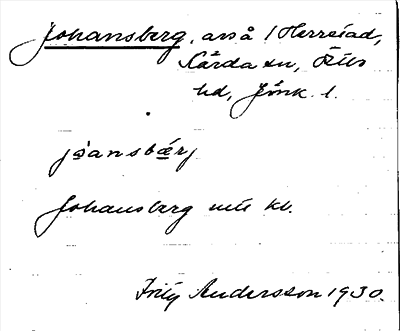 Johansberg, avs å 1 Herrestad,
Kärda sn, Östbo
hd, Jönk. l.
jo̲ansbæ̲rj
Johansberg utu kl.
Fritz Andersson 1930.